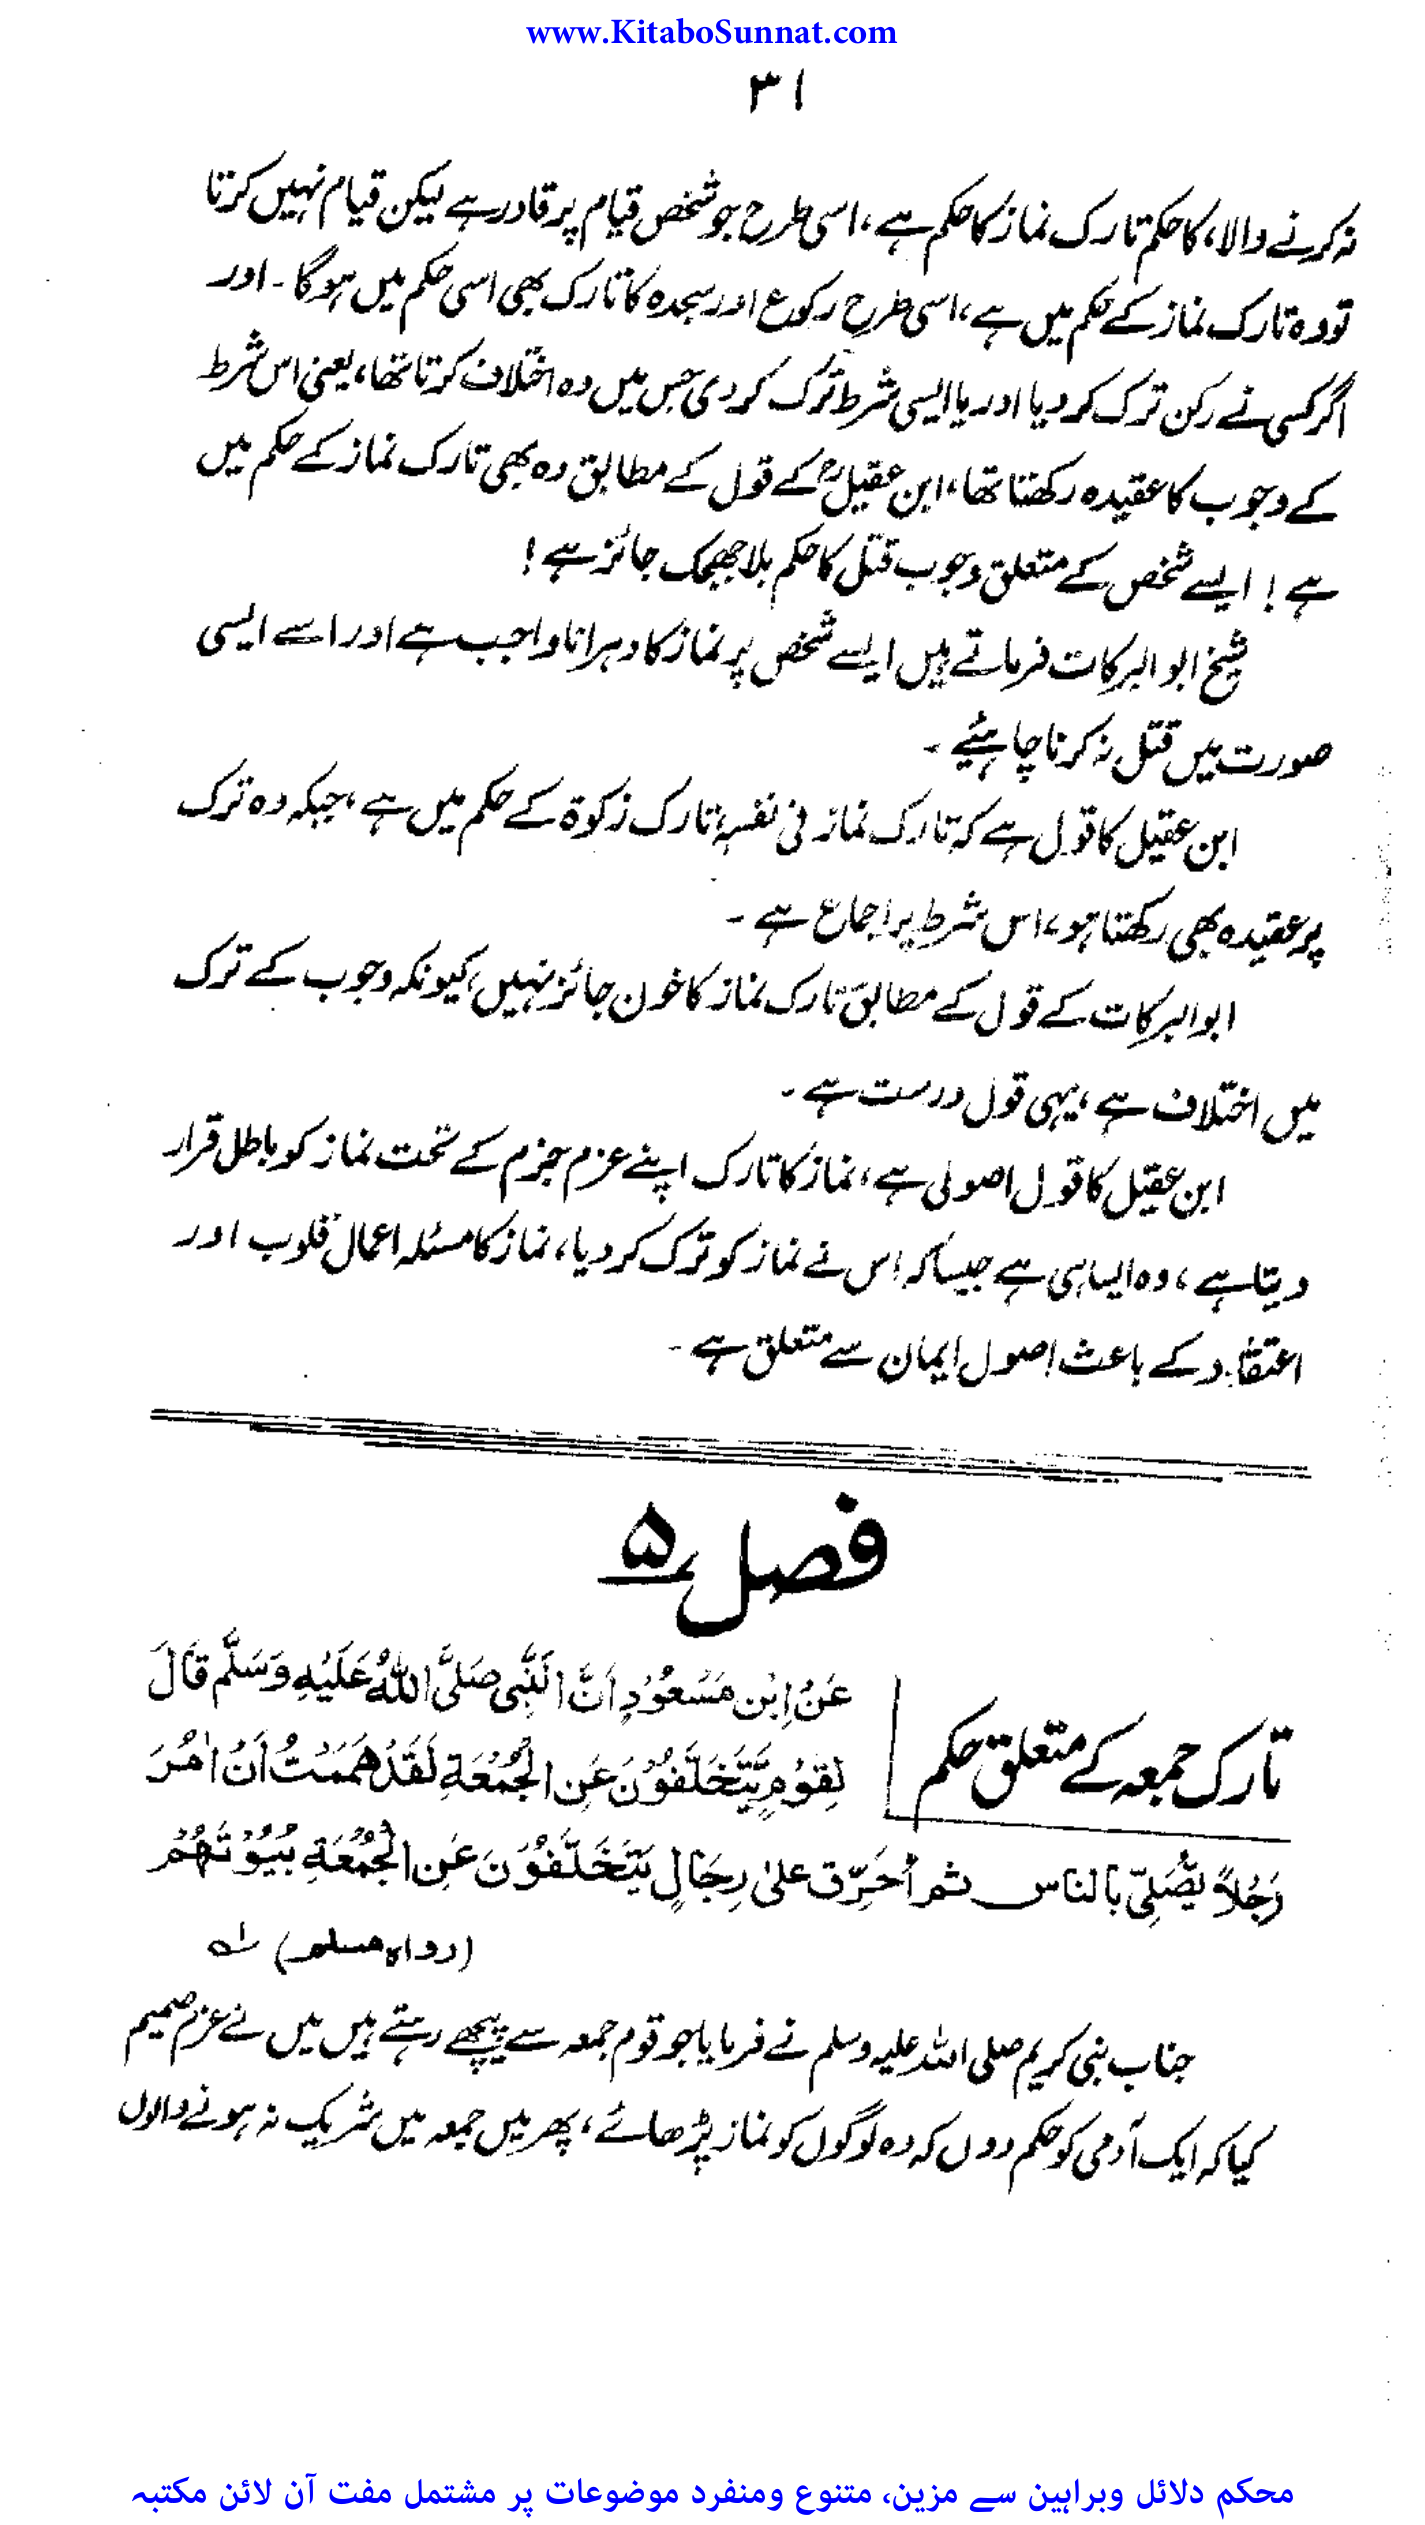 www.KitaboSunnat.com
۳۱
نہ کرنے والا، کا حکم تارک نماز کا حکم ہے، اسی طرح جو شخص قیام پر قادر ہے لیکن قیام نہیں کرتا
تو وہ تارک نماز کے حکم میں ہے، اسی طرح رکوع اور سجدہ کا تارک بھی اسی حکم میں ہوگا۔ اور
اگر کسی نے رکن ترک کر دیا اور یا ایسی شرط ترک کر دی جس میں وہ اختلاف کرتا تھا، یعنی اس شرط
کے وجوب کا عقیدہ رکھتا تھا، ابن عقیلؒ کے قول کے مطابق وہ بھی تارک نماز کے حکم میں
ہے! ایسے شخص کے متعلق وجوب قتل کا حکم بلا جھجک جائز ہے!
شیخ ابو البرکات فرماتے ہیں ایسے شخص پر نماز کا دہرانا واجب ہے اور اسے ایسی
صورت میں قتل نہ کرنا چاہئیے۔
ابن عقیل کا قول ہے کہ تارک نماز فی نفسہٖ تارک زکوۃ کے حکم میں ہے، جبکہ وہ ترک
پر عقیدہ بھی رکھتا ہو، اس شرط پر اجماع ہے۔
ابو البرکات کے قول کے مطابق تارک نماز کا خون جائز نہیں، کیونکہ وجوب کے ترک
میں اختلاف ہے، یہی قول درست ہے۔
ابن عقیل کا قول اصولی ہے، نماز کا تارک اپنے عزم جزم کے تحت نماز کو باطل قرار
دیتا ہے، وہ ایسا ہی ہے جیسا کہ اس نے نماز کو ترک کر دیا، نماز کا مسئلہ اعمال قلوب اور
اعتقاد کے باعث اصول ایمان سے متعلق ہے۔
فصل ۵
تارک جمعہ کے متعلق حکم
عَنْ اِبْنِ مَسْعُوْدٍ اَنَّ النَّبِی صَلَّی اللّٰهُ عَلَيْهِ وَسَلَّم قَالَ
لِقَوْمٍ يَّتَخَلَّفُوْنَ عَنِ الْجُمُعَةِ لَقَدْ هَمَمْتُ اَنْ اٰمُرَ
رَجُلاً يُّصَلِّی بالناس ثم اُحَرِّق علیٰ رِجَالٍ يَتَخَلَّفُوْنَ عَنِ الْجُمُعَةِ بُيُوْتَهُمْ
(رواه مسلم) لہ
جناب نبی کریم صلی اللہ علیہ وسلم نے فرمایا جو قوم جمعہ سے پیچھے رہتے ہیں میں نے عزم صمیم
کیا کہ ایک آدمی کو حکم دوں کہ وہ لوگوں کو نماز پڑھائے، پھر میں جمعہ میں شریک نہ ہونے والوں
محکم دلائل وبراہین سے مزین، متنوع ومنفرد موضوعات پر مشتمل مفت آن لائن مکتبہ